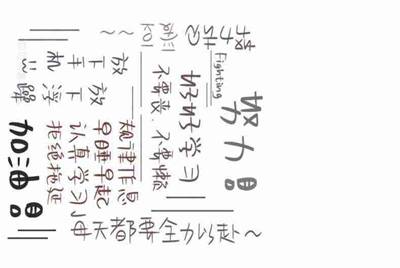 努力吧
Fighting
好好学习
不要丧.不要懒
规律作息
早睡早起
认真学习
拒绝拖延
放下手机
放下浮躁
加油吧
每天都要全力以赴~